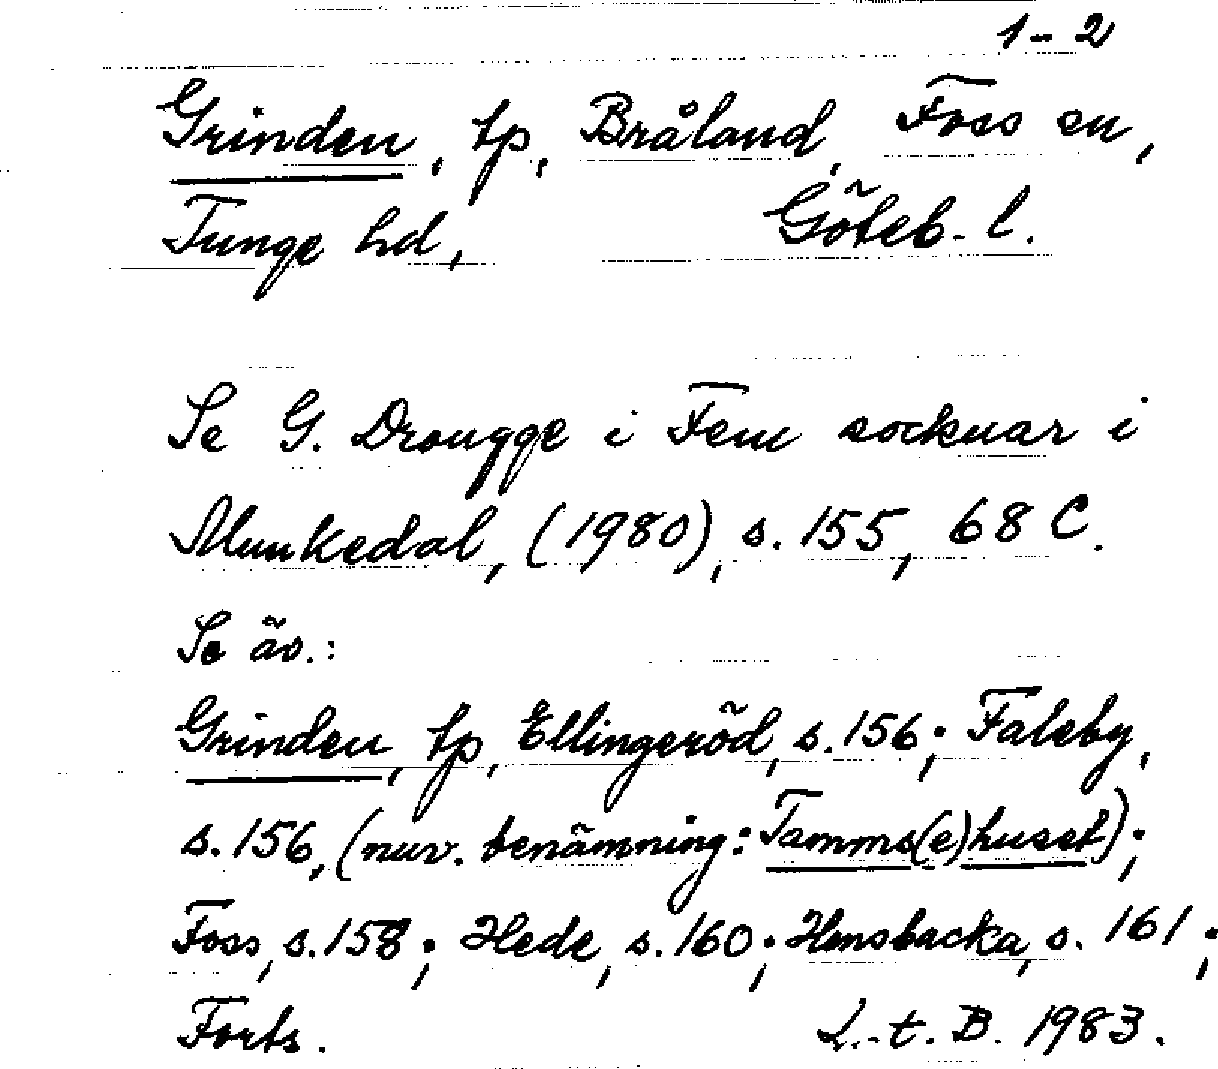 1-2
Grinden, tp, Bråland, Foss sn,
Tunge hd, Göteb. l.
Se G. Drougge i Fem socknar i
Munkedal, (1980), s. 155, 68 C.
Se äv.:
Grinden, tp, Ellingeröd, s. 156; Faleby,
s. 156, (nuv. benämning: Tamms(e)huset);
Foss, s. 158; Hede, s. 160; Hensbacka, s. 161;
Forts. L.-t. B. 1983.